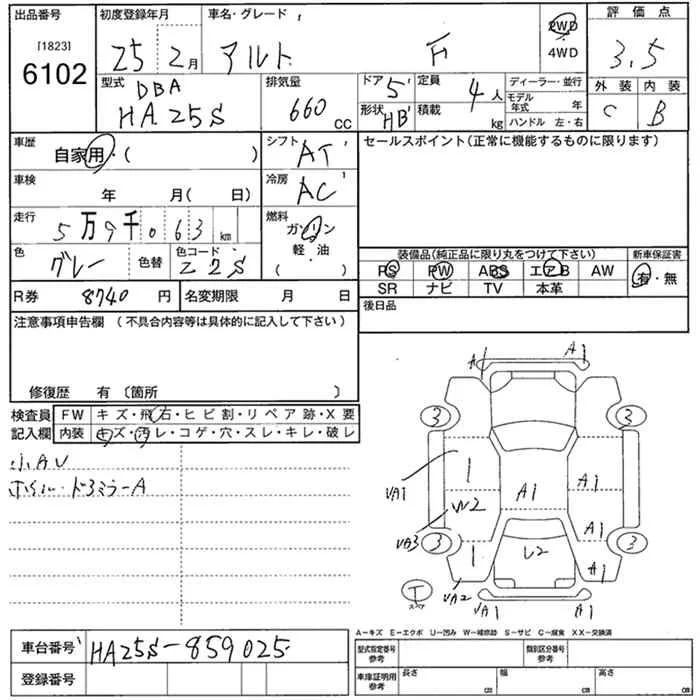 出品番号
[1823]
6102
初度登録年月
25 2月
車名・グレード
アルト F
2WD
4WD
評価点
3.5
型式
DBA
HA25S
排気量
660 cc
ドア 5
定員 4人
形状 HB
積載 kg
ディーラー・並行
モデル年式 年
ハンドル 左・右
外装 内装
C B
車歴
自家用・( )
シフト AT
セールスポイント(正常に機能するものに限ります)
車検
年 月( 日)
冷房 AC
走行
5万9千063 km
燃料
ガソリン
軽・油
( )
色
グレー
色替
色コード
Z2S
装備品(純正品に限り丸をつけて下さい)
新車保証書
PS PW ABS エアB AW
有・無
SR ナビ TV 本革
R券 8740 円
名変期限 月 日
後日品
注意事項申告欄 (不具合内容等は具体的に記入して下さい)
修復歴 有 〔箇所 〕
検査員
記入欄
FW キズ・飛石・ヒビ割・リペア跡・X要
内装 キズ・汚レ・コゲ・穴・スレ・キレ・破レ
小AU
ホイル・ドアミラーA
A1 A1
3 3
1 A1
UA1
A1
W2
A1
UA3
3 3
1 U2 A1
UA2
T
スペア
UA1 A1
A-キズ E-エクボ U-凹み W-補修跡 S-サビ C-腐食 XX-交換済
車台番号 HA25S-859025
登録番号
型式指定番号
参考
類別区分番号
参考
車庫証明用
参考
長さ cm
幅 cm
高さ cm